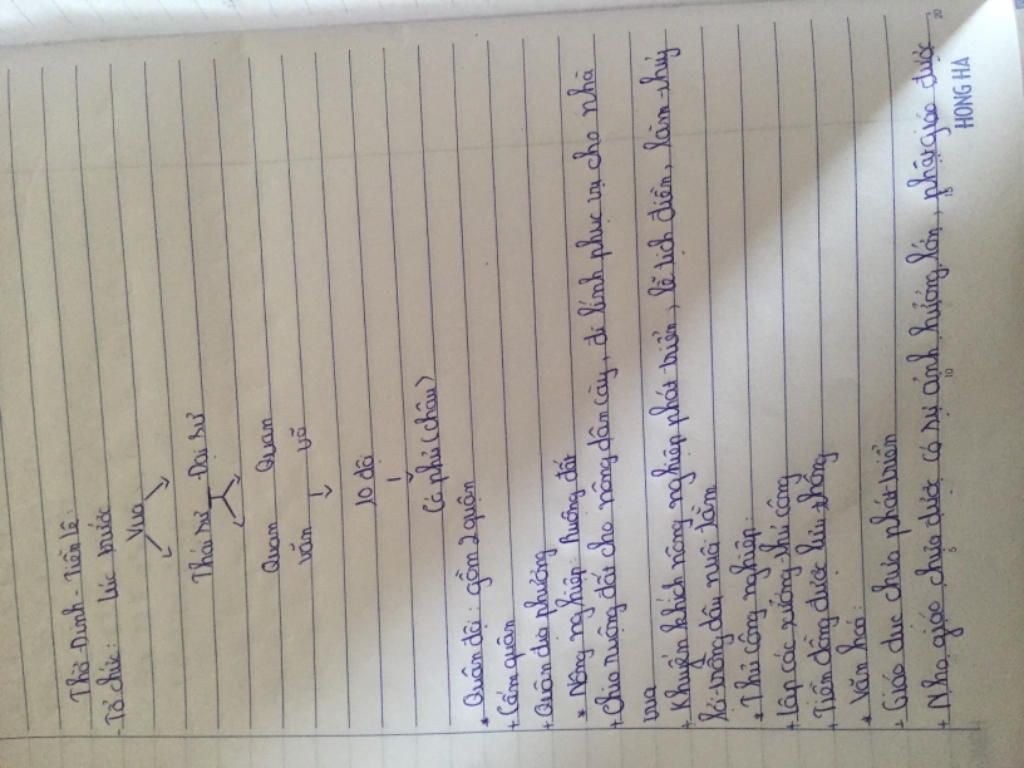 Thời Đinh - Tiền Lê:
- Tổ chức: bức nước
Vua
Thái sư - Đại sư
Quan Quan
văn võ
10 đạo
Có phủ (châu)
* Quân đội: gồm 2 quân
+ Cấm quân
+ Quân địa phương
* Nông nghiệp: ruộng đất
+ chia ruộng đất cho nông dân cày, đi lính phục vụ cho nhà
vua
+ Khuyến khích nông nghiệp phát triển, lễ tịch điền, làm thủy
lợi - trồng dâu nuôi tằm
* Thủ công nghiệp:
+ Lập các xưởng thủ công
+ Tiền đồng được lưu thông
* Văn hoá:
+ Giáo dục chưa phát triển
+ Nho giáo chưa được có sự ảnh hưởng lớn, phật giáo được
5 10 15 20
HONG HA